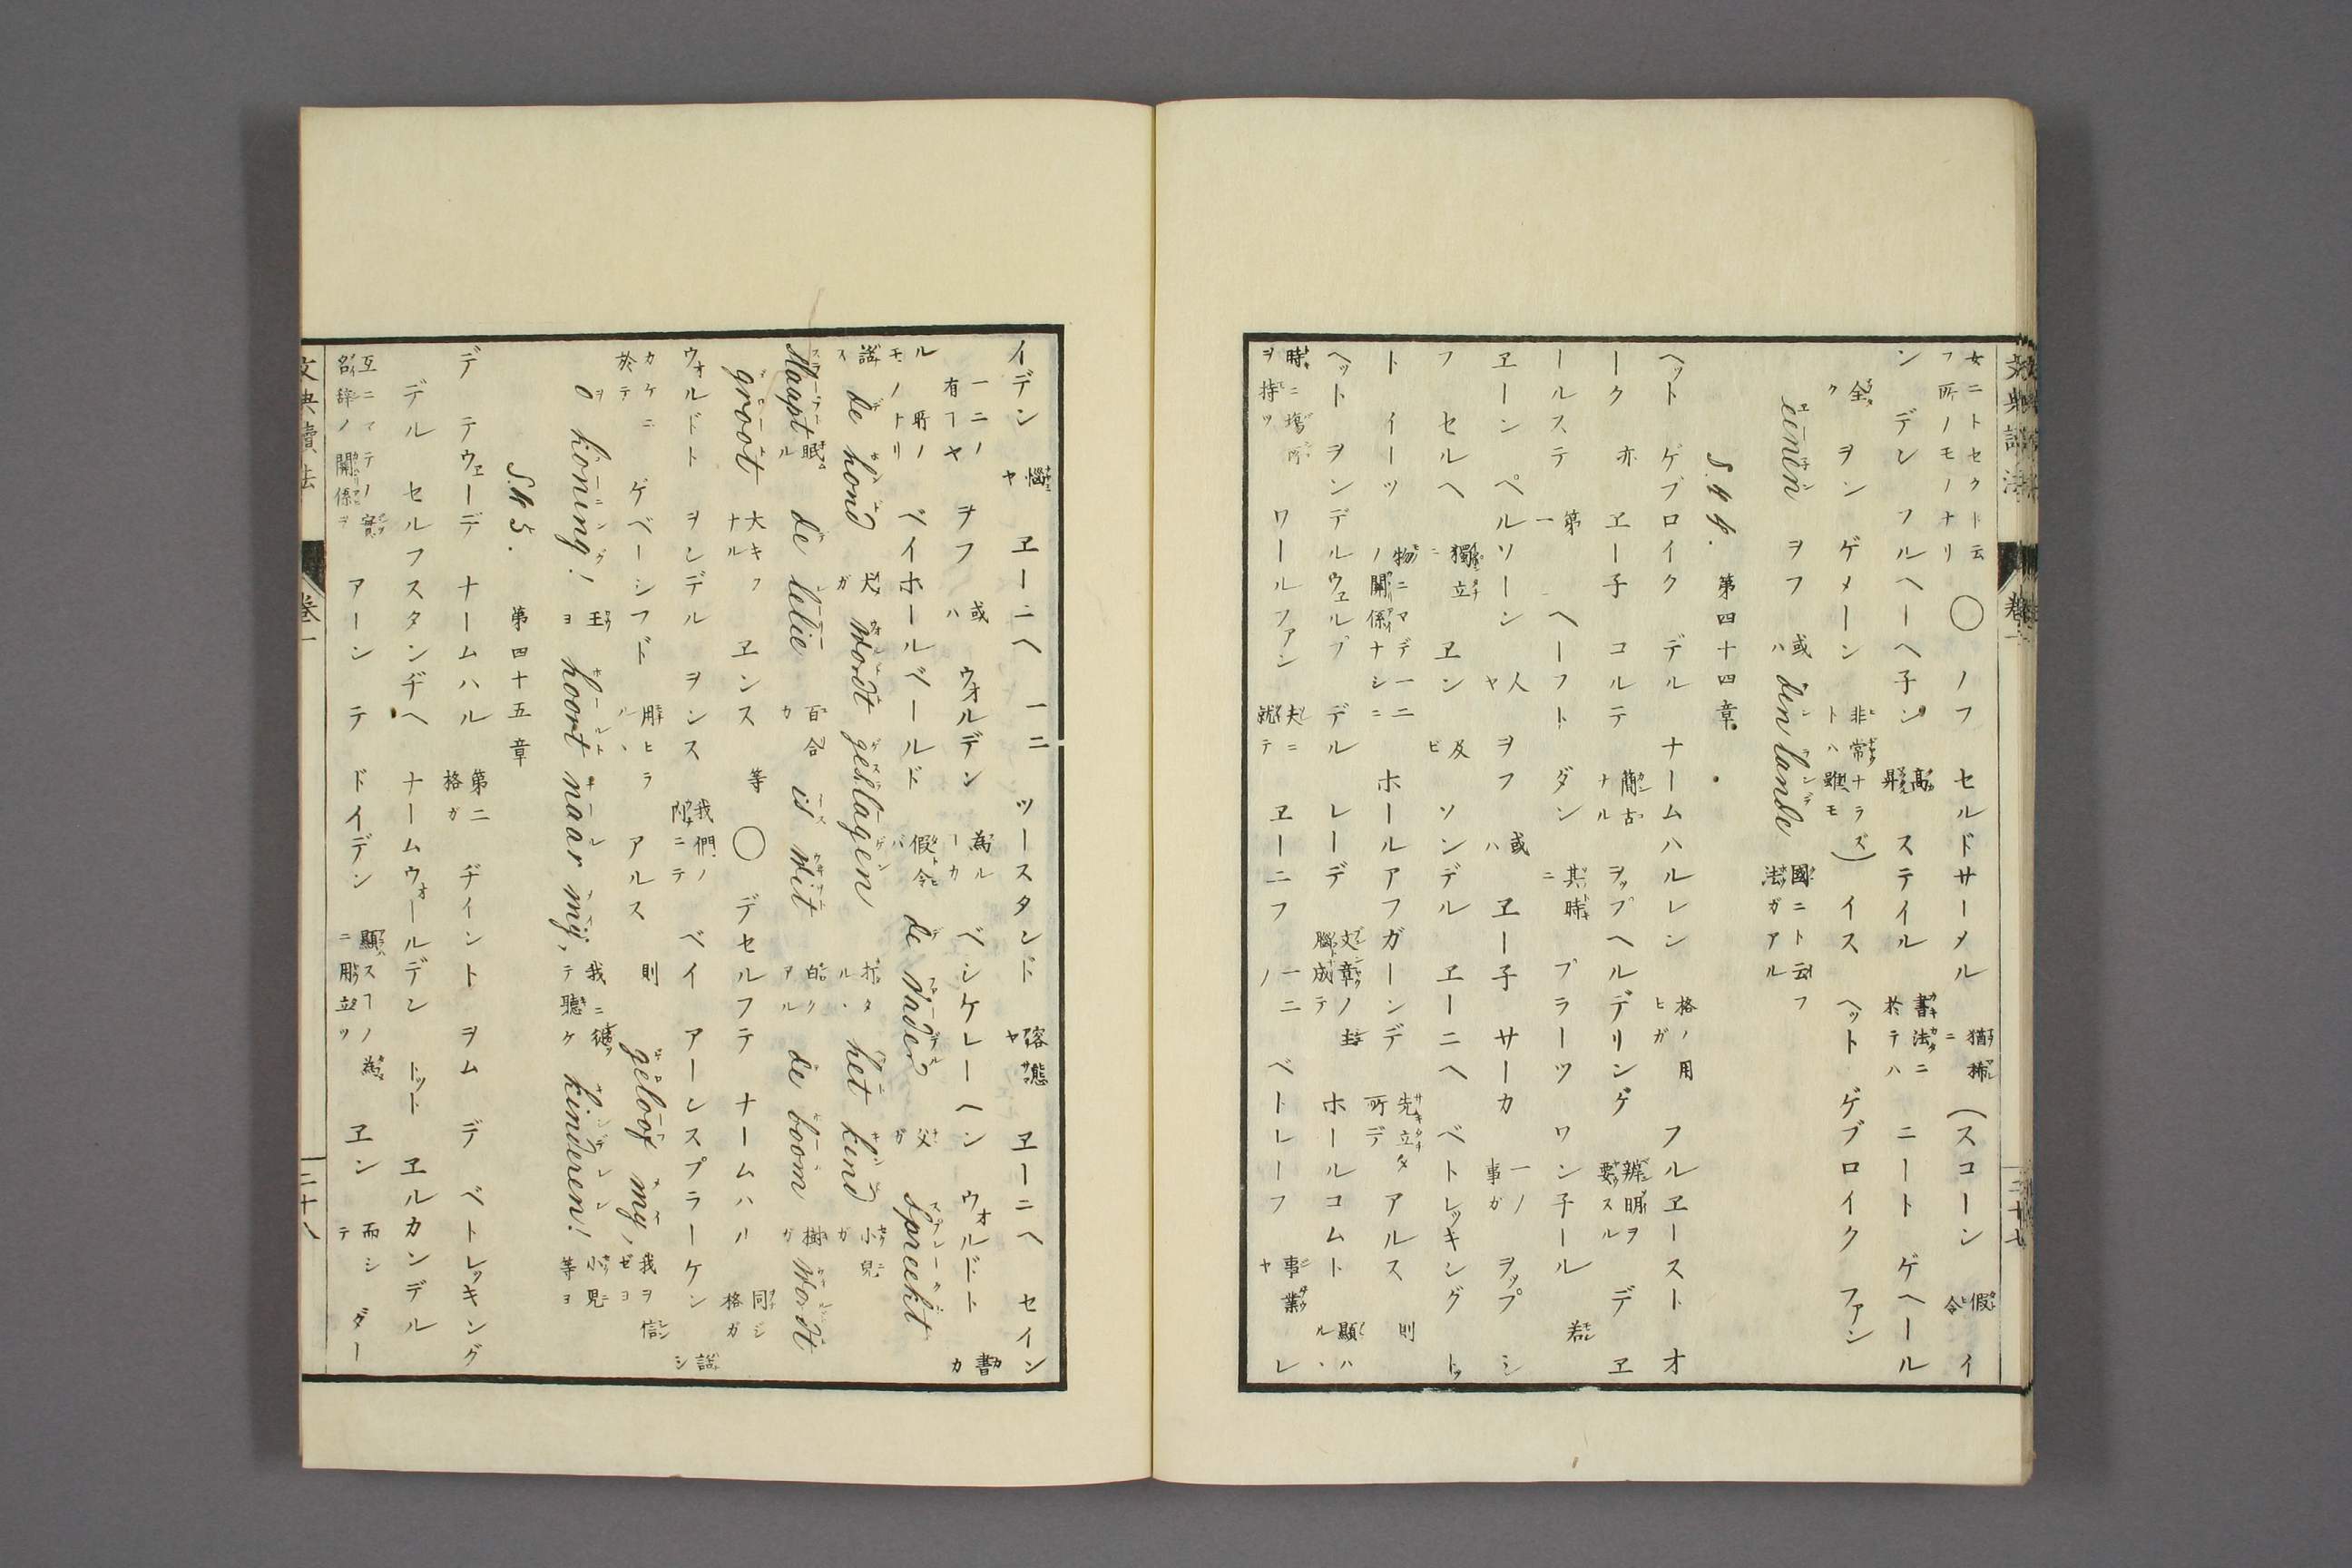 女ニトセクト云フ所ノモノナリ ◯ ノフ セルドサーメル 猶稀ニ (スコーン 假令 イ
ン デン フルヘーヘ子ン 高昇 ステイル 書法ニ於テハ ニート ゲヘール
全ク ヲン ゲメーン 非常ナラズト雖モ) イス ヘット ゲブロイク ファン
eenen ヲフ 或ハ den lande 國ニト云フ法ガアル
S.44. 第四十四章
ヘット ゲブロイク デル ナームハルレン 格ノ用ヒガ フルヱースト オ
ーク 亦 ヱー子 コルテ 簡古ナル ヲップヘルデリング 辨明ヲ要スル デ ヱ
ールステ 第一 ヘーフト ダン 其時ニ プラーツ ワン子ール 若シ
ヱーン ペルソーン 人ヤ ヲフ 或ハ ヱー子 サーカ 一ノ事ガ ヲップ シ
フ セルヘ 獨立ニ ヱン 及ビ ソンデル ヱーニヘ ベトレッキング トッ
ト イーツ 物ニマデ一二ノ關係ナシニ ホールアフガーンデ 先立タ所デ アルス 則
ヘット ヲンデルウェルプ デル レーデ 文章ノ主 ホールコムト 顯ハル、
時ニ場所ヲ持ツ ワールファン 夫ニ就テ ヱーニフ 一二ノ ベトレーフ 事業ヤ レ
イデン 惱ヤ ヱーニヘ 一二 ツースタンド 容態ヤ ヱーニヘ セイン
一二ノ有ヿヤ ヲフ 或ハ ウォルデン 為ルヿカ ベシケレーヘン ウォルドト 書カ
ル所ノモノナリ ベイホールベールド 假令バ de vader 父ガ spreekt
談ス de hond 犬ガ wordt geslagen 打タル、 het kind 小兒ガ
slaapt 眠ル de lelie 百合カ is wit 白クアル de boom 樹ガ wordt
groot 大キクナル ヱンス 等 ◯ デセルフテ ナームハル 同シ格ガ
ウォルドト ヲンデル ヲンス 我們ノ間ニテ ベイ アーンスプラーケン 談シ
カケニ於テ ゲベーシフド 用ヒラル、 アルス 則 geloof mij, 我ヲ信ゼヨ
o koning! 王ヨ hoort naar mij, 我ニ從テ聽ケ kinderen! 小兒等ヨ
S.45. 第四十五章
デ テウェーデ ナームハル 第二格ガ ヂイント ヲム デ ベトレッキング
デル セルフスタンヂヘ ナームウォールデン トット ヱルカンデル
互ニマテノ實名辞ノ關係ヲ アーン テ ドイデン 顯スヿノ為ニ用立ツ ヱン 而シテ ダー
文典讀法 卷一 二十七
文典讀法 卷一 二十八